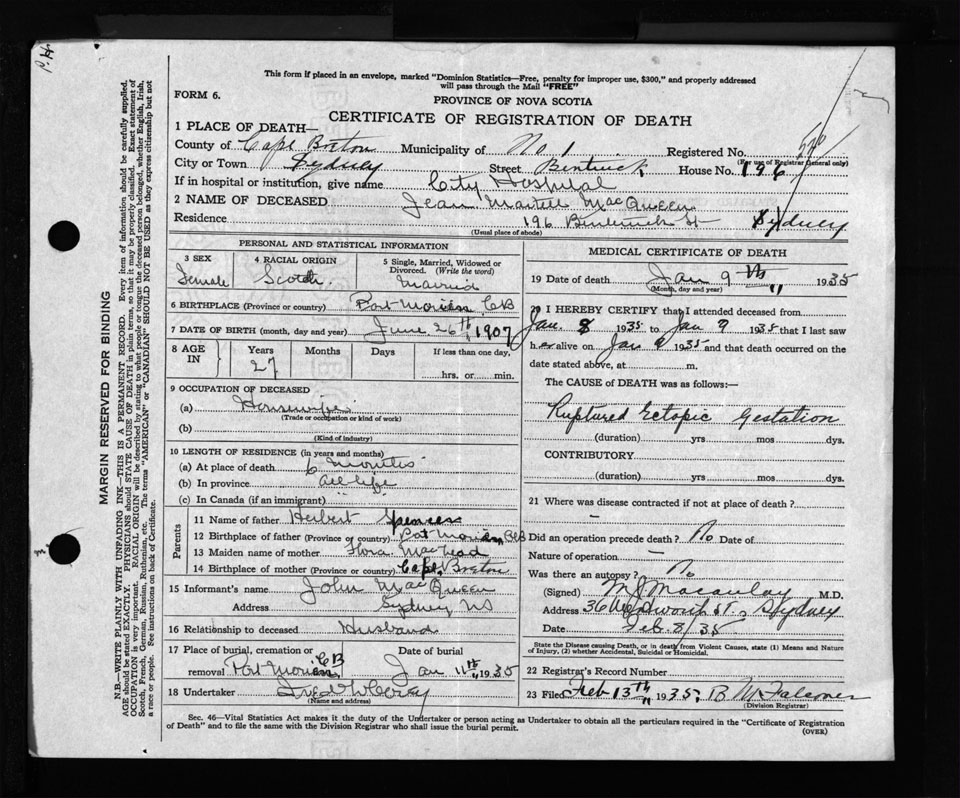 This form if placed in an envelope, marked "Dominion Statistics—Free, penalty for improper use, $300," and properly addressed
will pass through the Mail "FREE"
FORM 6.
PROVINCE OF NOVA SCOTIA
CERTIFICATE OF REGISTRATION OF DEATH
1 PLACE OF DEATH—
County of Cape Breton Municipality of No 1 Registered No.
(For use of Registrar General only)
City or Town Sydney Street House No. 196
If in hospital or institution, give name City Hospital
2 NAME OF DECEASED Jean Martell MacQueen
Residence 196 St Sydney
(Usual place of abode)
PERSONAL AND STATISTICAL INFORMATION
3 SEX Female
4 RACIAL ORIGIN Scotch
5 Single, Married, Widowed or Divorced. (Write the word) Married
6 BIRTHPLACE (Province or country) Port Morien, CB
7 DATE OF BIRTH (month, day and year) June 26th 1907
8 AGE IN Years Months Days If less than one day,
27 hrs. or min.
9 OCCUPATION OF DECEASED
(a) Housewife
(Trade or occupation or kind of work)
(b)
(Kind of industry)
10 LENGTH OF RESIDENCE (in years and months)
(a) At place of death 6 months
(b) In province all life
(c) In Canada (if an immigrant)
Parents
11 Name of father Herbert Spencer
12 Birthplace of father (Province or country) Port Morien CB
13 Maiden name of mother Flora
14 Birthplace of mother (Province or country) Cape Breton
15 Informant's name John MacQueen
Address Sydney NS
16 Relationship to deceased Husband
17 Place of burial, cremation or removal Port Morien CB
Date of burial Jan 11th, 1935
18 Undertaker
(Name and address)
MEDICAL CERTIFICATE OF DEATH
19 Date of death Jan 9th 1935
(Month, day and year)
20 I HEREBY CERTIFY that I attended deceased from
Jan. 8 1935 to Jan 9 1935 that I last saw
her alive on Jan 9 1935 and that death occurred on the
date stated above, at m.
The CAUSE OF DEATH was as follows:
Ruptured Ectopic Gestation
(duration) yrs mos dys.
CONTRIBUTORY
(duration) yrs mos dys.
21 Where was disease contracted if not at place of death?
Did an operation precede death? No Date of
Nature of operation —
Was there an autopsy? No
(Signed) M J Macaulay M.D.
Address St., Sydney
Date Feb. 8/35
State the Disease causing Death, or in death from Violent Causes, state (1) Means and Nature
of Injury, (2) whether Accidental, Suicidal or Homicidal.
22 Registrar's Record Number
23 Filed Feb 13th, 1935; B M Falconer
(Division Registrar)
Sec. 46—Vital Statistics Act makes it the duty of the Undertaker or person acting as Undertaker to obtain all the particulars required in the "Certificate of Registration
of Death" and to file the same with the Division Registrar who shall issue the burial permit.
(OVER)
MARGIN RESERVED FOR BINDING
N.B.—WRITE PLAINLY WITH UNFADING INK—THIS IS A PERMANENT RECORD. Every item of information should be carefully supplied.
AGE should be stated EXACTLY. PHYSICIANS should STATE CAUSE OF DEATH in plain terms, so that it may be properly classified. Exact statement of
OCCUPATION is very important. RACIAL ORIGIN will be described by stating to what people or tongue the deceased person belonged, whether English, Irish,
Scotch, French, German, Russian, Ruthenian, etc. The terms "AMERICAN" or "CANADIAN" SHOULD NOT BE USED as they express citizenship but not
a race or people. See instructions on back of Certificate.